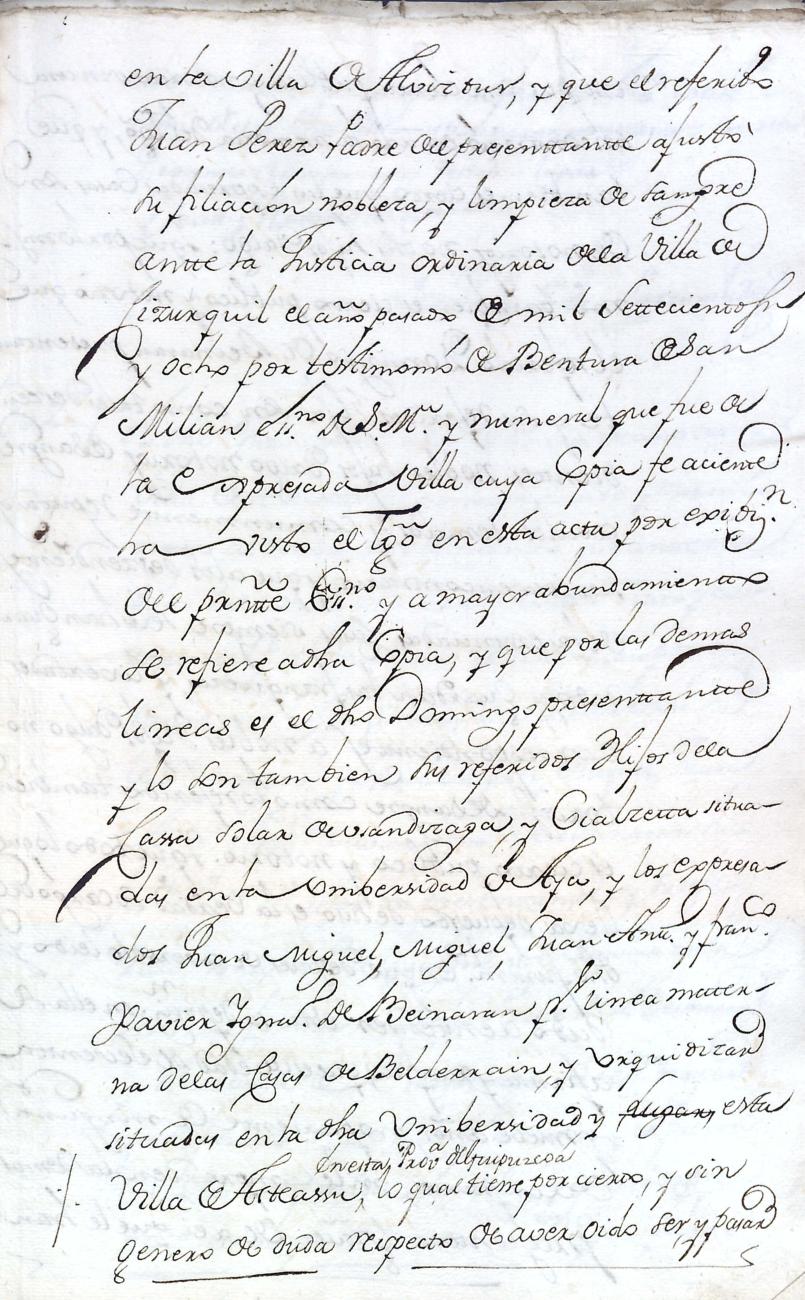 9
en la villa de Alviztur, y que el referido
Juan Perez Padre del presenttantte ajustò
su filiación nobleza, y limpieza de sangre
antte la Justicia ordinaria de la Villa de
Lizurquil el año pasado de mil Settecientos
y ocho por testimonio de Bentura de San
Milian essno. de S. Md. y numeral que fue de
la expresada Villa cuya Copia fe aciente
ha visto el Tgô en esta acta por exiĵn.
del prntte Essno. y a mayor abundamiento
se refiere a dha Copia, y que por las demas
lineas es el dho Domingo presenttantte
y lo son tambien sus referidos Hijos dela
Cassa solar de usandizaga, y Cialzetta situa-
das en la Unibersidad de Aya, y los expresa-
dos Juan Miguel, Miguel, Juan Antt. y Franco.
Xavier Ignao. de Beinaran pr. linea mater-
na delas Casas de Belderrain, y Urquidizar
situadas en la dha Unibersidad y lugar, esta
en esta Prova. de Guipuzcoa
Villa de Asteassu, lo qual tiene por cierto, y sin
genero de duda respecto de aver oido ser, y pasar